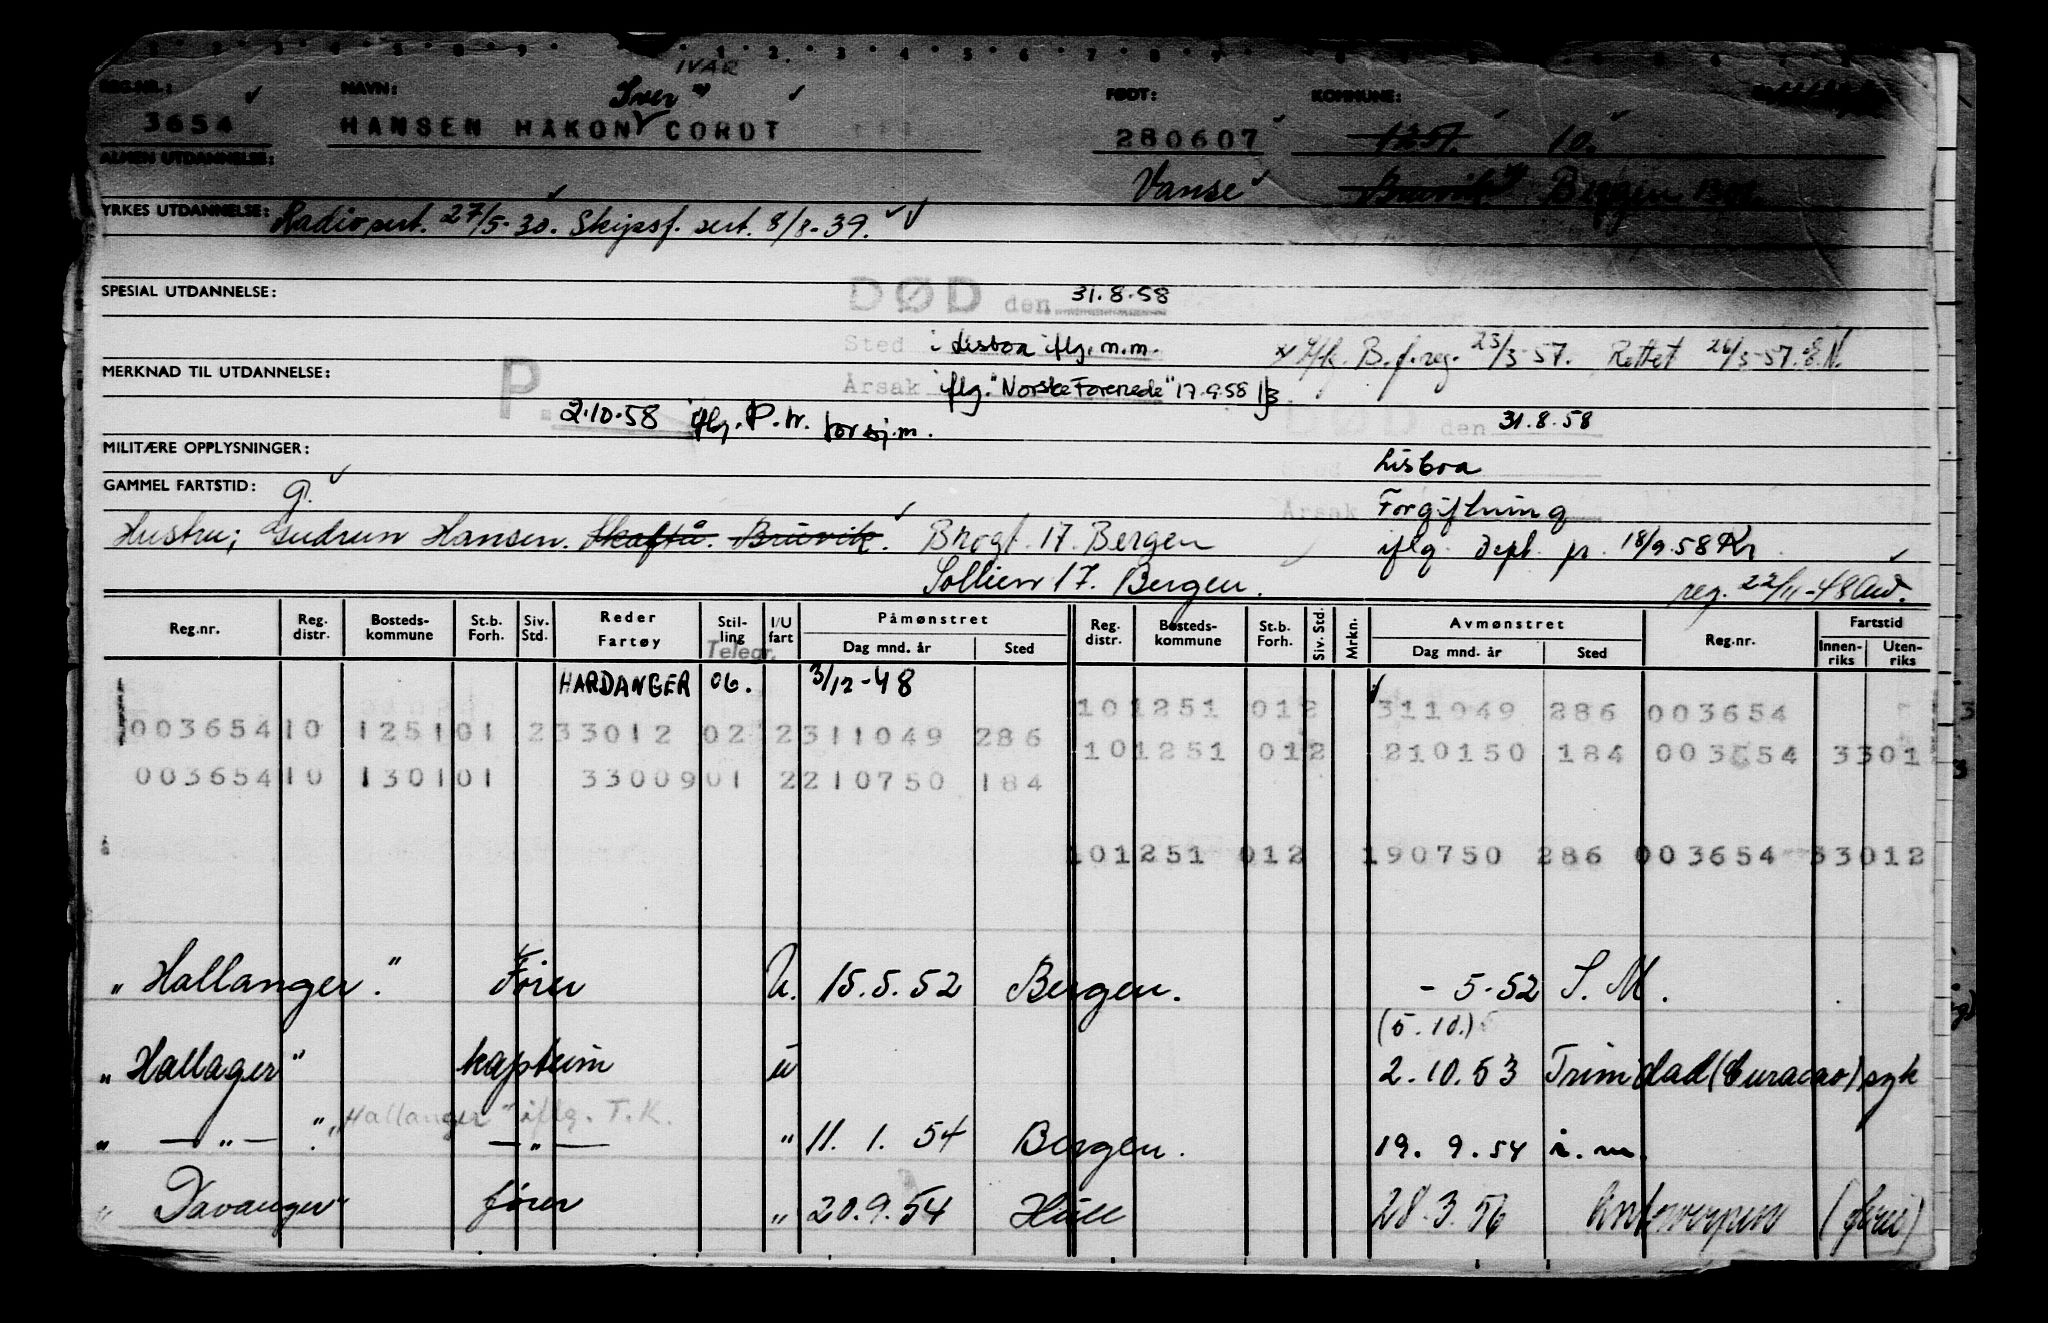 IVAR
REG.NR.: NAVN: Iver FØDT: KOMMUNE:
3654 HANSEN HAKON CORDT 280607 1251. 10.
ALMEN UTDANNELSE: Vanse Bruvik Bergen 1301.
YRKES UTDANNELSE: Radiosert. 27/5-30. Skipsf. sert. 8/8-39.
SPESIAL UTDANNELSE: DØD den 31.8.58
Sted i Lisboa iflg. m.m. B.f.reg. 23/3-57. Rettet 26/3-57.
MERKNAD TIL UTDANNELSE: P. Årsak iflg. "Norske Forenede" 17.9.58
2.10.58 iflg. P. tr. for sj.m. DØD den 31.8.58
MILITÆRE OPPLYSNINGER: Lisboa
GAMMEL FARTSTID: g. Årsak Forgiftning
Hustru; Gudrun Hansen. Skaftå. Bruvik. Brogt. 17. Bergen iflg. Dept. pr. 18/9.58 Kr
Sollien 17. Bergen. reg. 22/11-48
Reg.nr. Reg. distr. Bosteds-kommune St.b. Forh. Siv. Std. Reder Fartøy Stil-ling I/U fart Påmønstret Dag mnd. år Sted Reg. distr. Bosteds-kommune St.b. Forh. Siv. Std. Mrkn. Avmønstret Dag mnd. år Sted Reg.nr. Fartstid Innen-riks Uten-riks
Telegr.
HARDANGER 06. 3/12-48
101251 012 311049 286 003654
00365410 125101 233012 02 2311049 286
101251 012 210150 184 003654 3301
00365410 130101 3300901 2210750 184
101251 012 190750 286 003654 33012
"Hallanger". Fører U. 15.5.52 Bergen. - 5-52 S. M.
(5.10.)
"Hallager" kaptein u 2.10.53 Trinidad (Curacao) syk
"Hallanger" iflg. T.K.
" — " — ". — " — " 11. 1. 54 Bergen. 19. 9. 54 i. m.
"Davanger" fører " 20.9.54 Hull 28.3.56 Antwerpen (ferie)